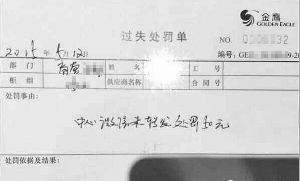 金鹰
GOLDEN EAGLE
过失处罚单
NO.
2015年5月12日
编号: GE
部门 姓名 工号
柜组 供应商名称 合同号
处罚事由:
中心 未转发处罚50元
处罚依据及结果: